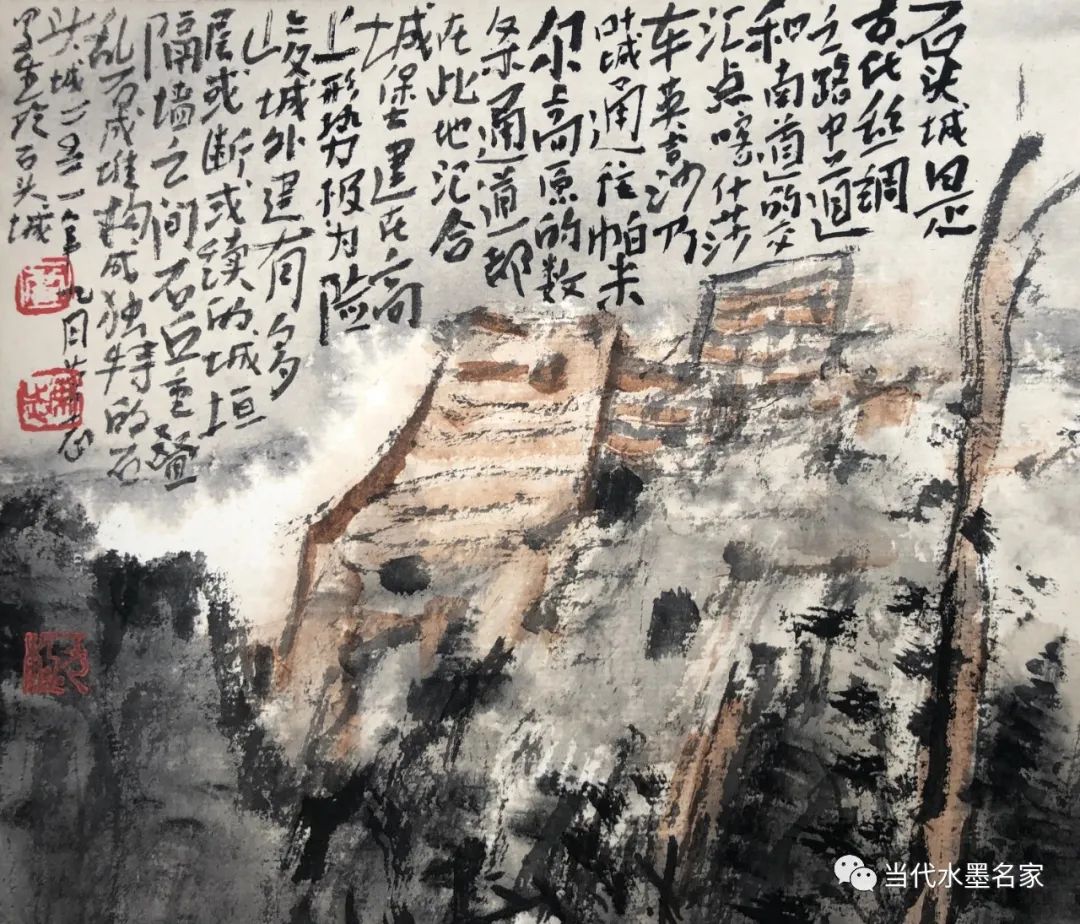 石头城
古代丝绸
之路中道
和南道的交
汇点喀什莎
车英吉沙乃
叶城通往帕米
尔高原的数
条通道都
在此地汇合
城堡建在高
上形势极为险
峻城外建有多
层或断或续的城垣
隔墙之间石丘重叠
乱石成堆构成独特的石
头城二〇一一年九月
写生于石头城
当代水墨名家